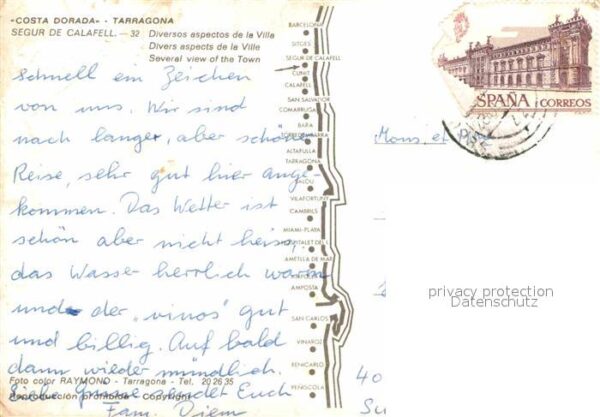 «COSTA DORADA» - TARRAGONA
SEGUR DE CALAFELL. — 32 Diversos aspectos de la Villa
Divers aspects de la Ville
Several view of the Town
schnell ein Zeichen
von uns. Wir sind
nach langer, aber schöner
Reise, sehr gut hier ange-
kommen. Das Wetter ist
schön aber nicht heiss,
das Wasser herrlich warm
und der "vinos" gut
und billig. Auf bald
dann wieder mündlich.
Liebe Grüsse sendet Euch
Fam. Diem
Foto color RAYMOND - Tarragona - Tel. 20 26 35
Reproducción prohibida - Copyright
BARCELONA
SITGES
SEGUR DE CALAFELL
CUNIT
CALAFELL
SAN SALVADOR
COMARRUGA
BARA
TORREDEMBARRA
ALTAFULLA
TARRAGONA
SALOU
VILAFORTUNY
CAMBRILS
MIAMI-PLAYA
HOSPITALET DEL I.
AMETLLA DE MAR
AMPOSTA
SAN CARLOS
VINAROZ
BENICARLO
PEÑISCOLA
ESPAÑA CORREOS
Mons. et
privacy protection
Datenschutz
40
Su